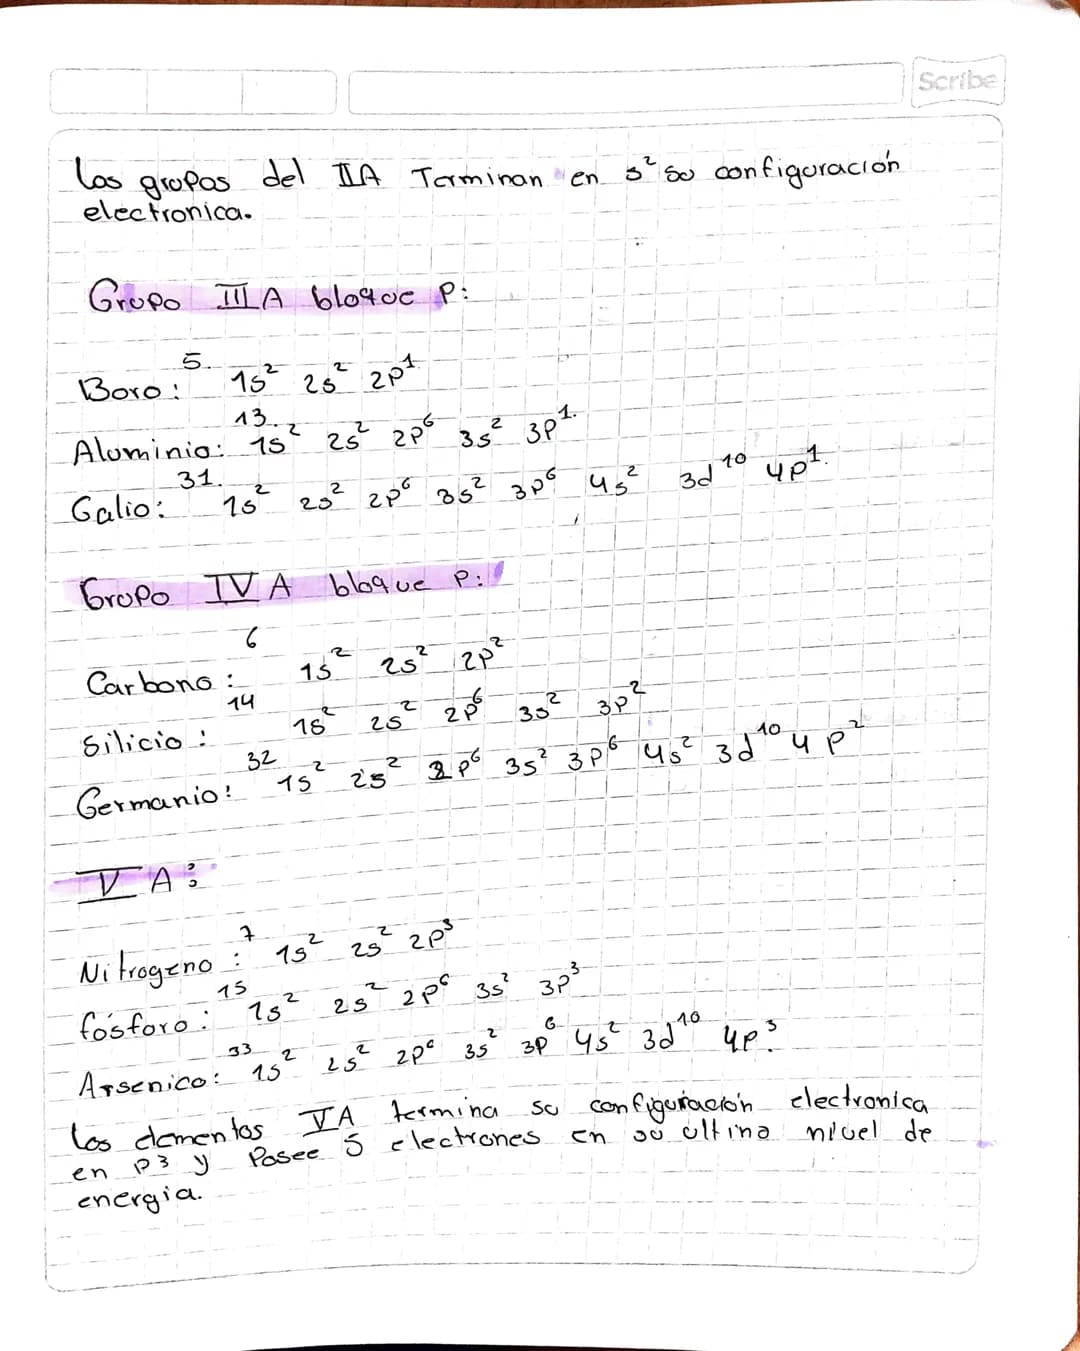 Scribe
Los grupos del IIA Terminan en s² su configuración
electronica.
Grupo IIIA bloque P:
5.
Boro: 1s² 2s² 2p¹
13.
Aluminio: 1s² 2s² 2p⁶ 3s² 3p¹.
31.
Galio: 1s² 2s² 2p⁶ 3s² 3p⁶ 4s² 3d¹⁰ 4p¹.
Grupo IV A bloque P:
6
Carbono: 1s² 2s² 2p²
14
Silicio: 1s² 2s² 2p⁶ 3s² 3p²
32
Germanio: 1s² 2s² 2p⁶ 3s² 3p⁶ 4s² 3d¹⁰ 4p²
V A:
7
Nitrogeno: 1s² 2s² 2p³
15
fósforo: 1s² 2s² 2p⁶ 3s² 3p³
33
Arsenico: 1s² 2s² 2p⁶ 3s² 3p⁶ 4s² 3d¹⁰ 4p³.
Los elementos VA termina su configuración electronica
en p3 y Posee 5 electrones en su ultino nivel de
energia.